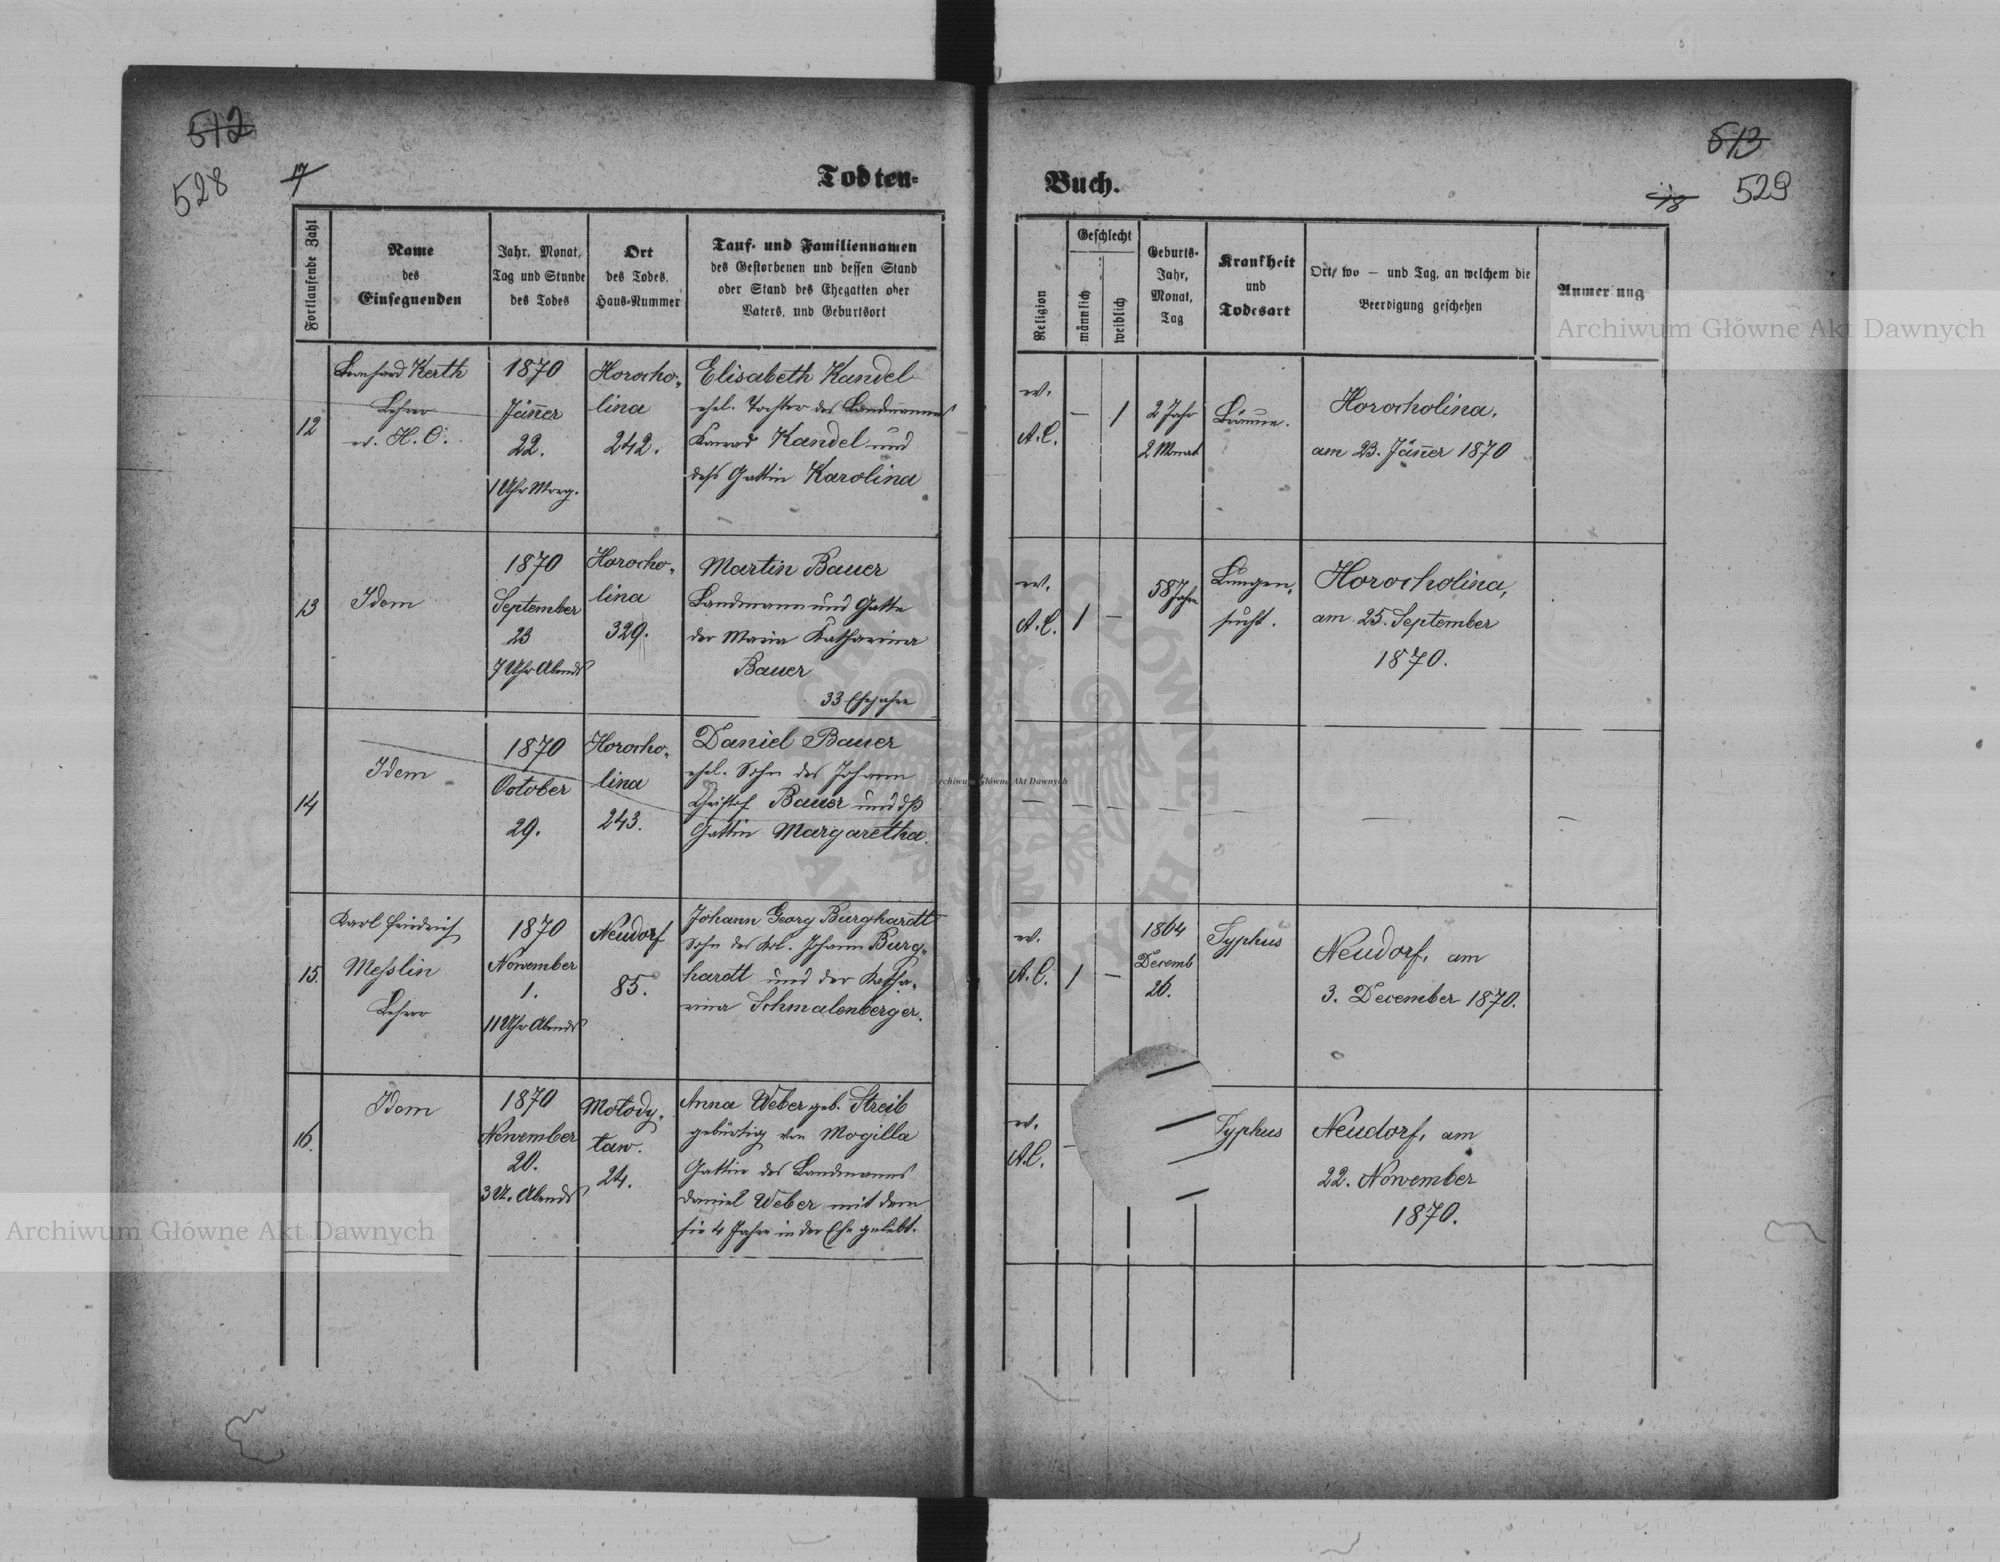 512
528
17
Todten-
Fortlaufende Zahl
Name
des
Einsegnenden
Jahr, Monat,
Tag und Stunde
des Todes
Ort
des Todes,
Haus-Nummer
Tauf- und Familiennamen
des Gestorbenen und dessen Stand
oder Stand des Ehegatten oder
Vaters, und Geburtsort
12
Leonhard Kerth
Lehrer
ev. H. C.
1870
Jäner
22.
1 Uhr Morg.
Horocho-
lina
242.
Elisabeth Kandel
ehel. Tochter des Landmannes
Konrad Kandel und
dess Gattin Karolina
13
Idem
1870
September
23
7 Uhr Abends
Horocho-
lina
329.
Martin Bauer
Landmann und Gatte
der Maria Katharina
Bauer
33 Ehejahre
14
Idem
1870
October
29.
Horocho-
lina
243.
Daniel Bauer
ehel. Sohn des Johann
Christof Bauer und dß
Gattin Margaretha.
15.
Karl Friedrich
Messlin
Lehrer
1870
November
1.
11 Uhr Abends
Neudorf
85.
Johann Georg Burghardt
Sohn des Johann Burg-
hardt und der Katha-
rina Schmalenberger.
16.
Idem
1870
November
20.
3 U. Abends
Mołody-
taw.
24.
Anna Weber geb. Streib
gebürtig von Mogilla
Gattin des Landmanns
Daniel Weber mit dem
sie 4 Jahre in der Ehe gelebt.
513
529
18
Buch.
Religion
Geschlecht
männlich
weiblich
Geburts-
Jahr,
Monat,
Tag
Krankheit
und
Todesart
Ort, wo – und Tag, an welchem die
Beerdigung geschehen
Anmerkung
ev.
A. C.
– 1
2 Jahr
2 Monat
Bräune.
Horocholina,
am 23. Jäner 1870
ev.
A. C.
1 –
58 Jahre
Lungen-
sucht.
Horocholina,
am 25. September
1870.
– – – – – – –
ev.
A. C.
1 –
1864
Decemb
26.
Typhus
Neudorf, am
3. December 1870.
ev.
A. C.
–
Typhus
Neudorf, am
22. November
1870.
Archiwum Główne Akt Dawnych
Archiwum Główne Akt Dawnych
Archiwum Główne Akt Dawnych